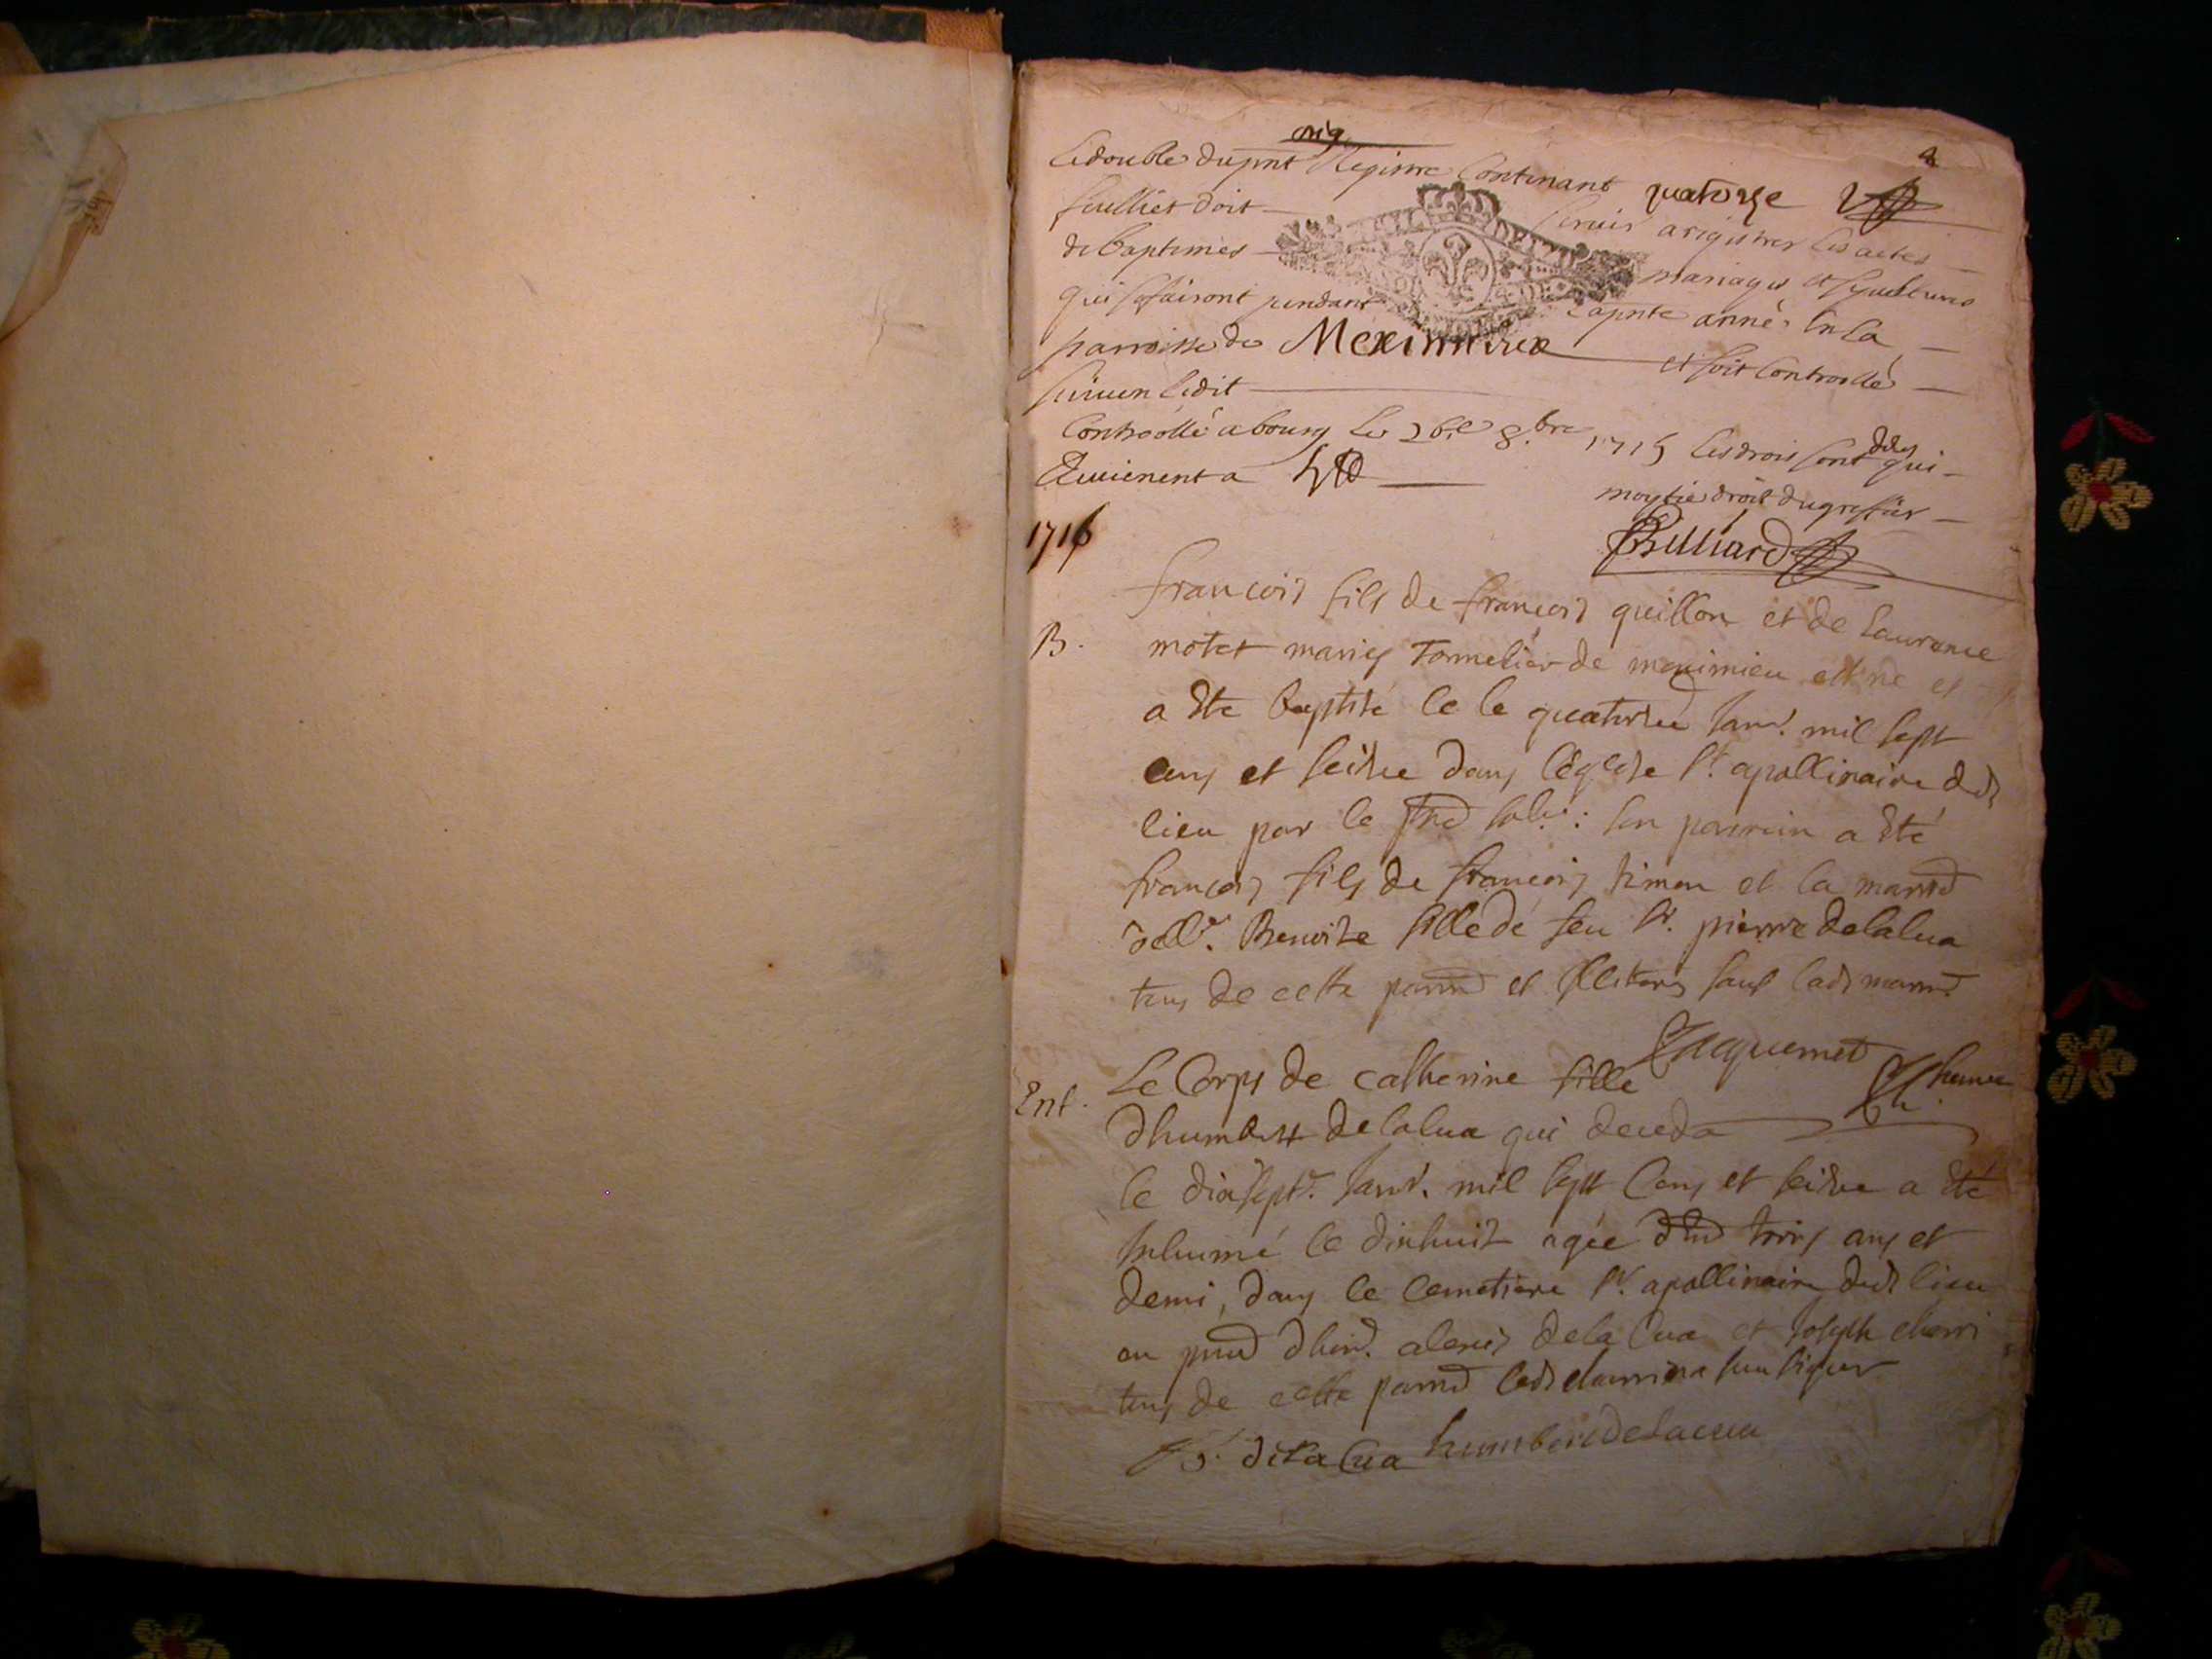 orig
Le double du pnt Registre Contenant quatorze
feulliet doit servir a registrer Les actes
de baptemes mariages et sepultures
qui se fairont pendant La pnte anné En La
parroisse de Meximieux et soit Controollé
suiven Ledit
Controollé a bourg Le 26.e 8.bre 1715 Les drois sont deus qui
Reuienent a moytie droit du greffier
1716
Billiard
francois fils de francois quillon et de Laurance
B. motet maries Tonnelier de meximieu est né et
a êté baptisé le le quatorze janv. mil sept
cens et seize dans l'eglise st. apollinaire dud
lieu par le sousig: son parrein a êté
francois fils de francois simon et la marr
dell.e Benoite fille de feu sr. pierre delalua
tous de cette parr et illiteres sauf lad marr
Jacquemet
Ent. Le Corps de catherine fille
dhumbert delalua qui deceda
le dixsept.e janv. mil sept Cens et seize a êté
Inhumé le dixhuit agée trois ans et
demi, dans le cemetiere st. apollinaire dud lieu
en d'hon. alexis dela Cua et Joseph
tous de cette parr
De la Cua humbert delacua